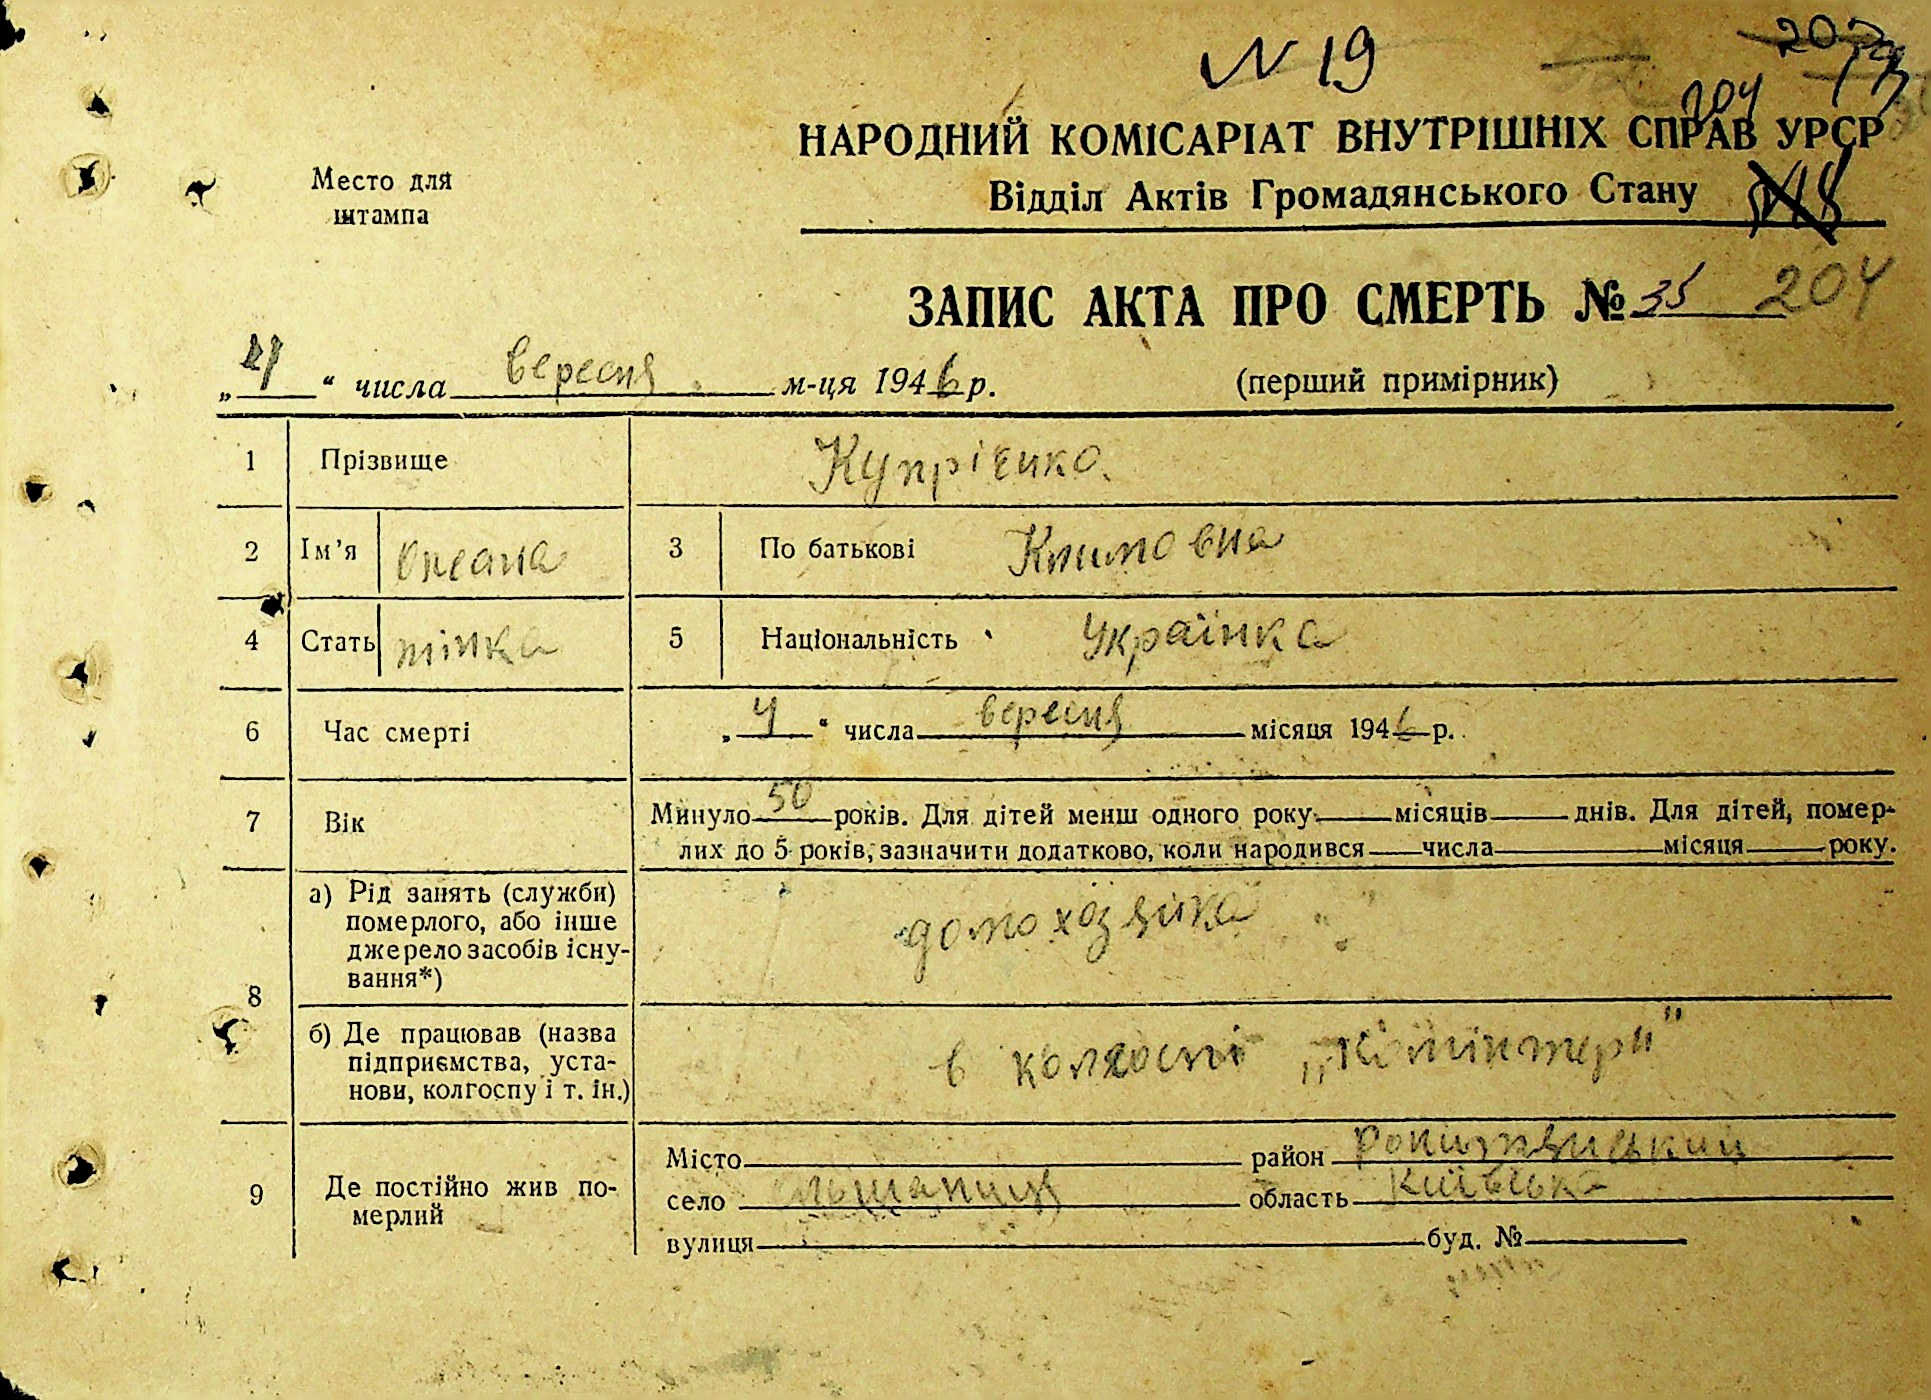 N 19
204
НАРОДНИЙ КОМІСАРІАТ ВНУТРІШНІХ СПРАВ УРСР
Место для
штампа
Відділ Актів Громадянського Стану
ЗАПИС АКТА ПРО СМЕРТЬ № 35 204
„ “ числа вересня м-ця 1946 р. (перший примірник)
1 Прізвище Купрієнко.
2 Ім’я Оксана 3 По батькові Климовна
4 Стать жінка 5 Національність Українка
6 Час смерті „4“ числа вересня місяця 1946 р.
7 Вік Минуло 50 років. Для дітей менш одного року місяців днів. Для дітей, помер-
лих до 5 років, зазначити додатково, коли народився числа місяця року.
8 а) Рід занять (служби)
померлого, або інше
джерело засобів існу-
вання*)
домохозяйка
б) Де працював (назва
підприємства, уста-
нови, колгоспу і т. ін.)
в колхоспі „Комінтерн"
9 Де постійно жив по-
мерлий
Місто район Рокитнянський
село Ольшаниця область Київська
вулиця буд. №